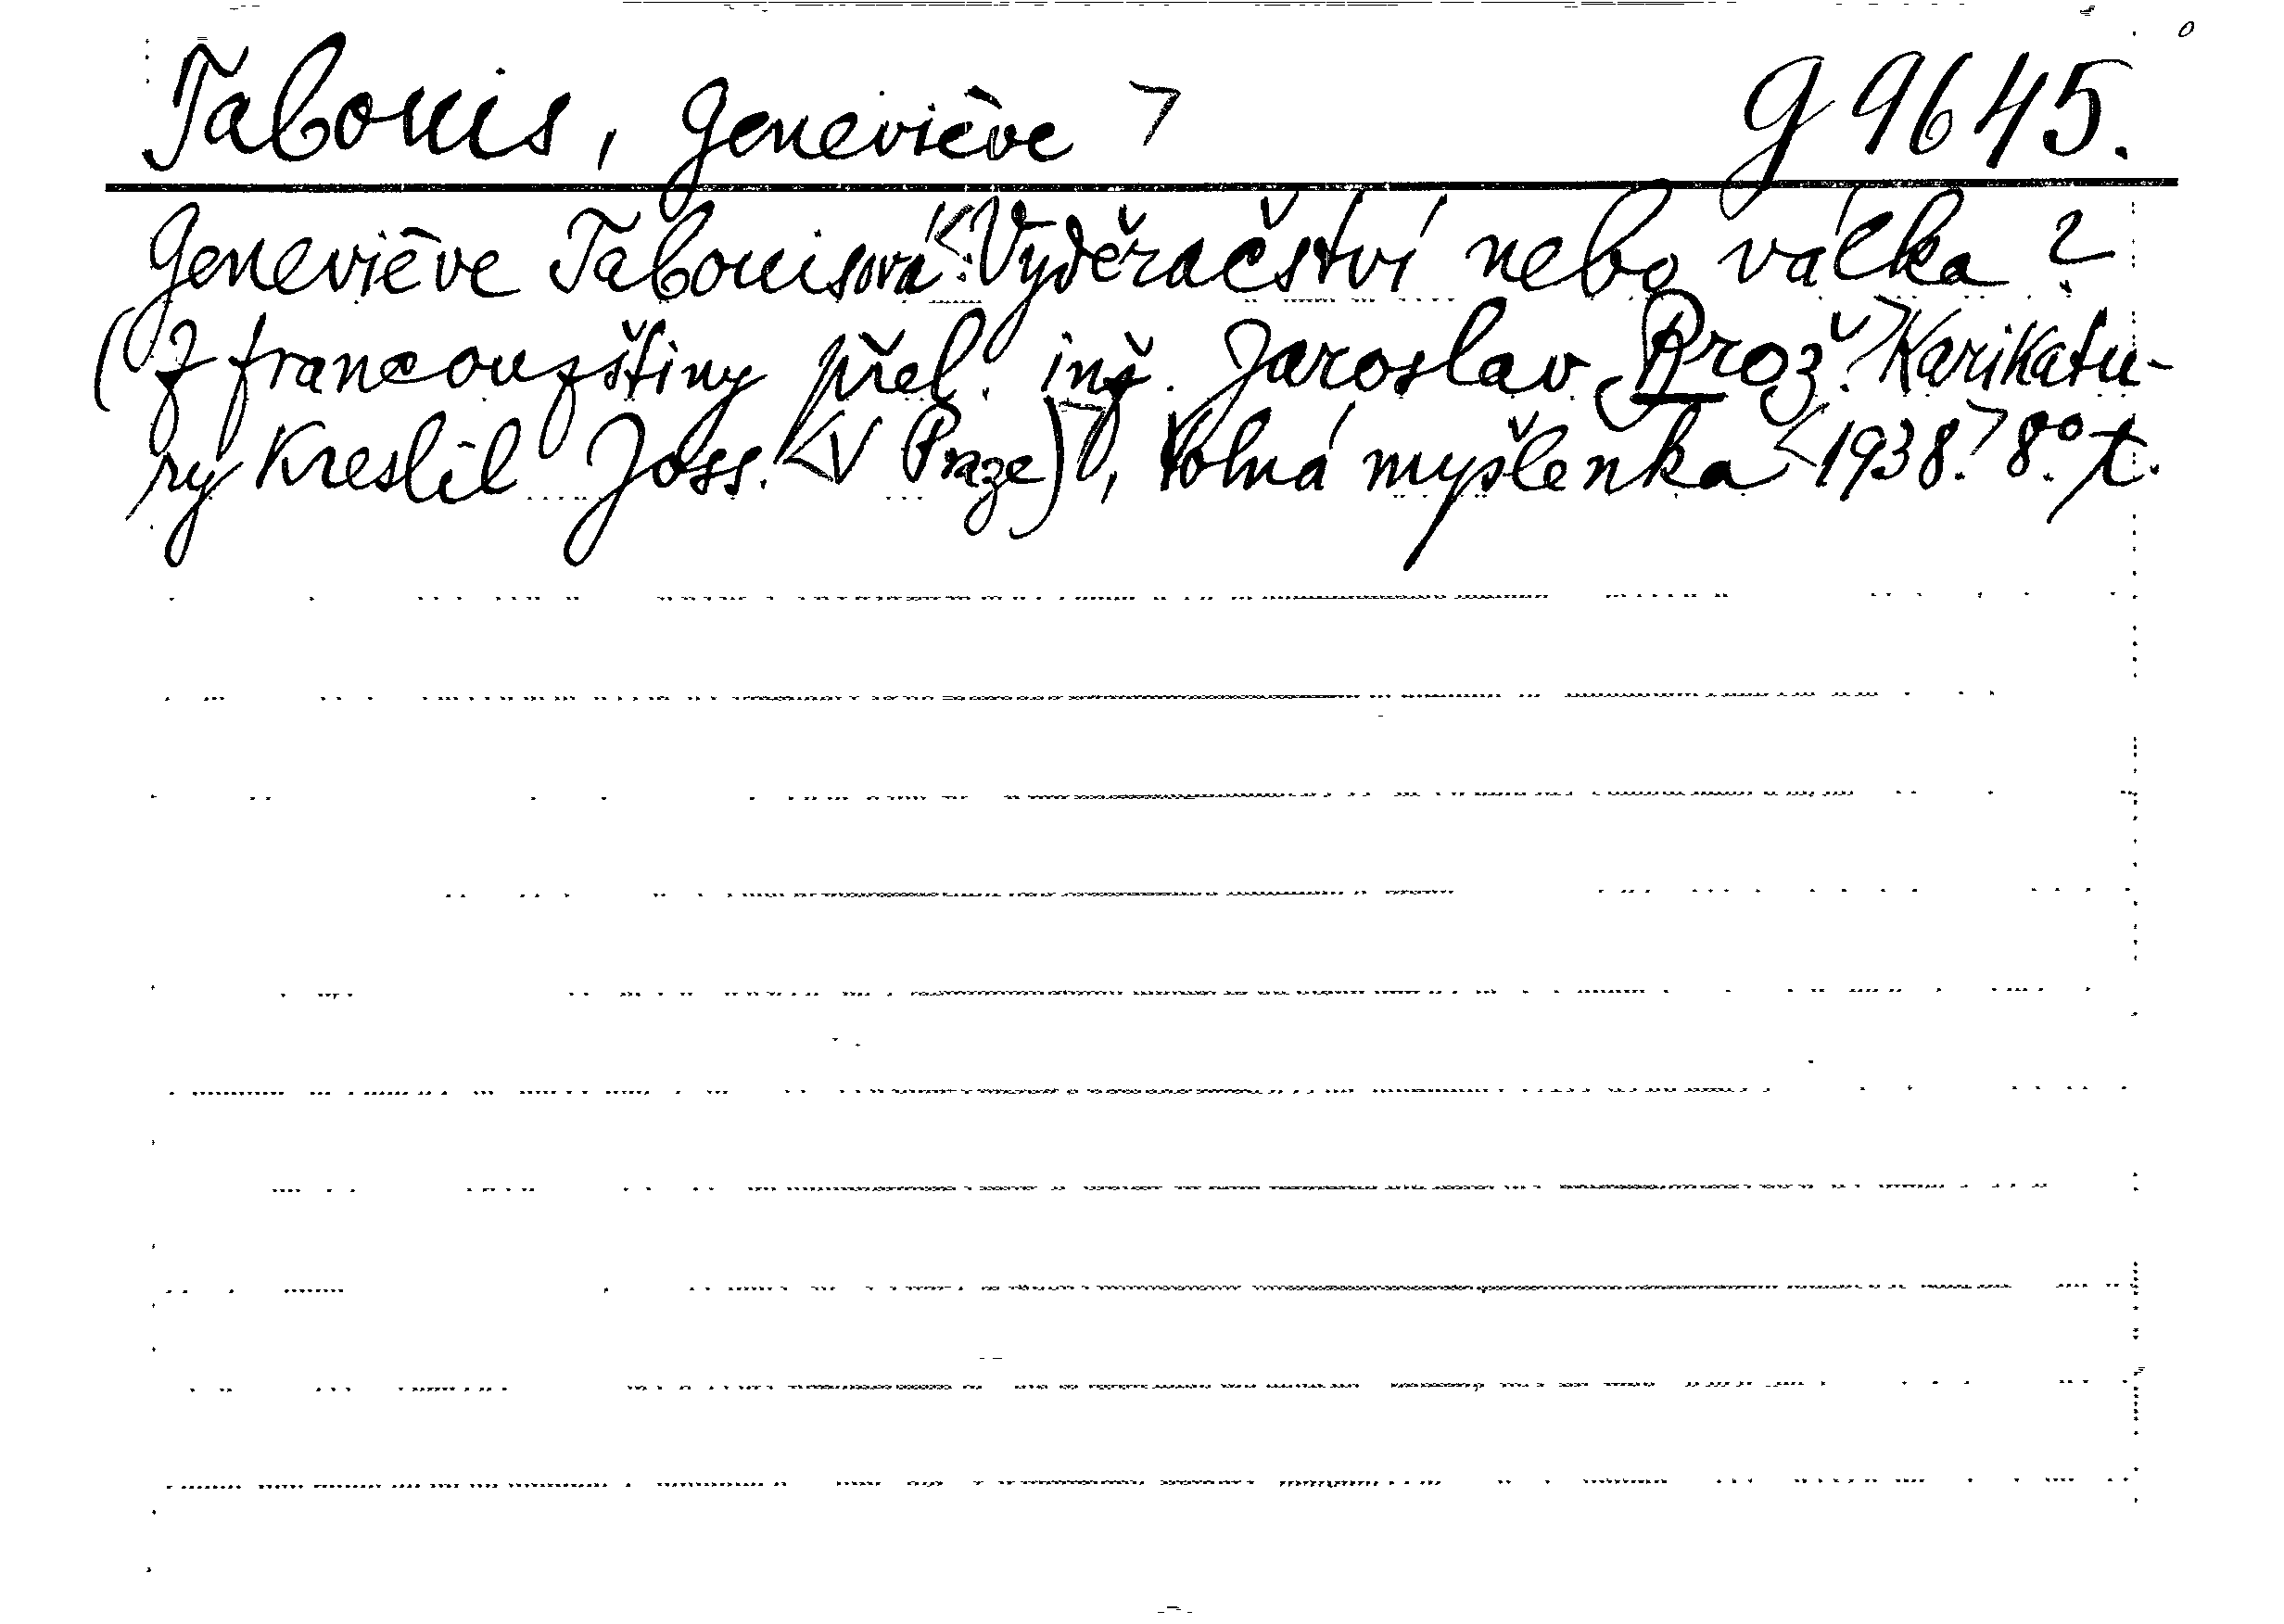 Tabouis, Geneviève > G 9645.
Geneviève Tabouisová <: Vyděračství nebo válka?
(Z francouzštiny přel. inž. Jaroslav Prož.> Karikatu-
ry kreslil Joss. <V Praze)>, Volná myšlenka <1938.> 8°. t.